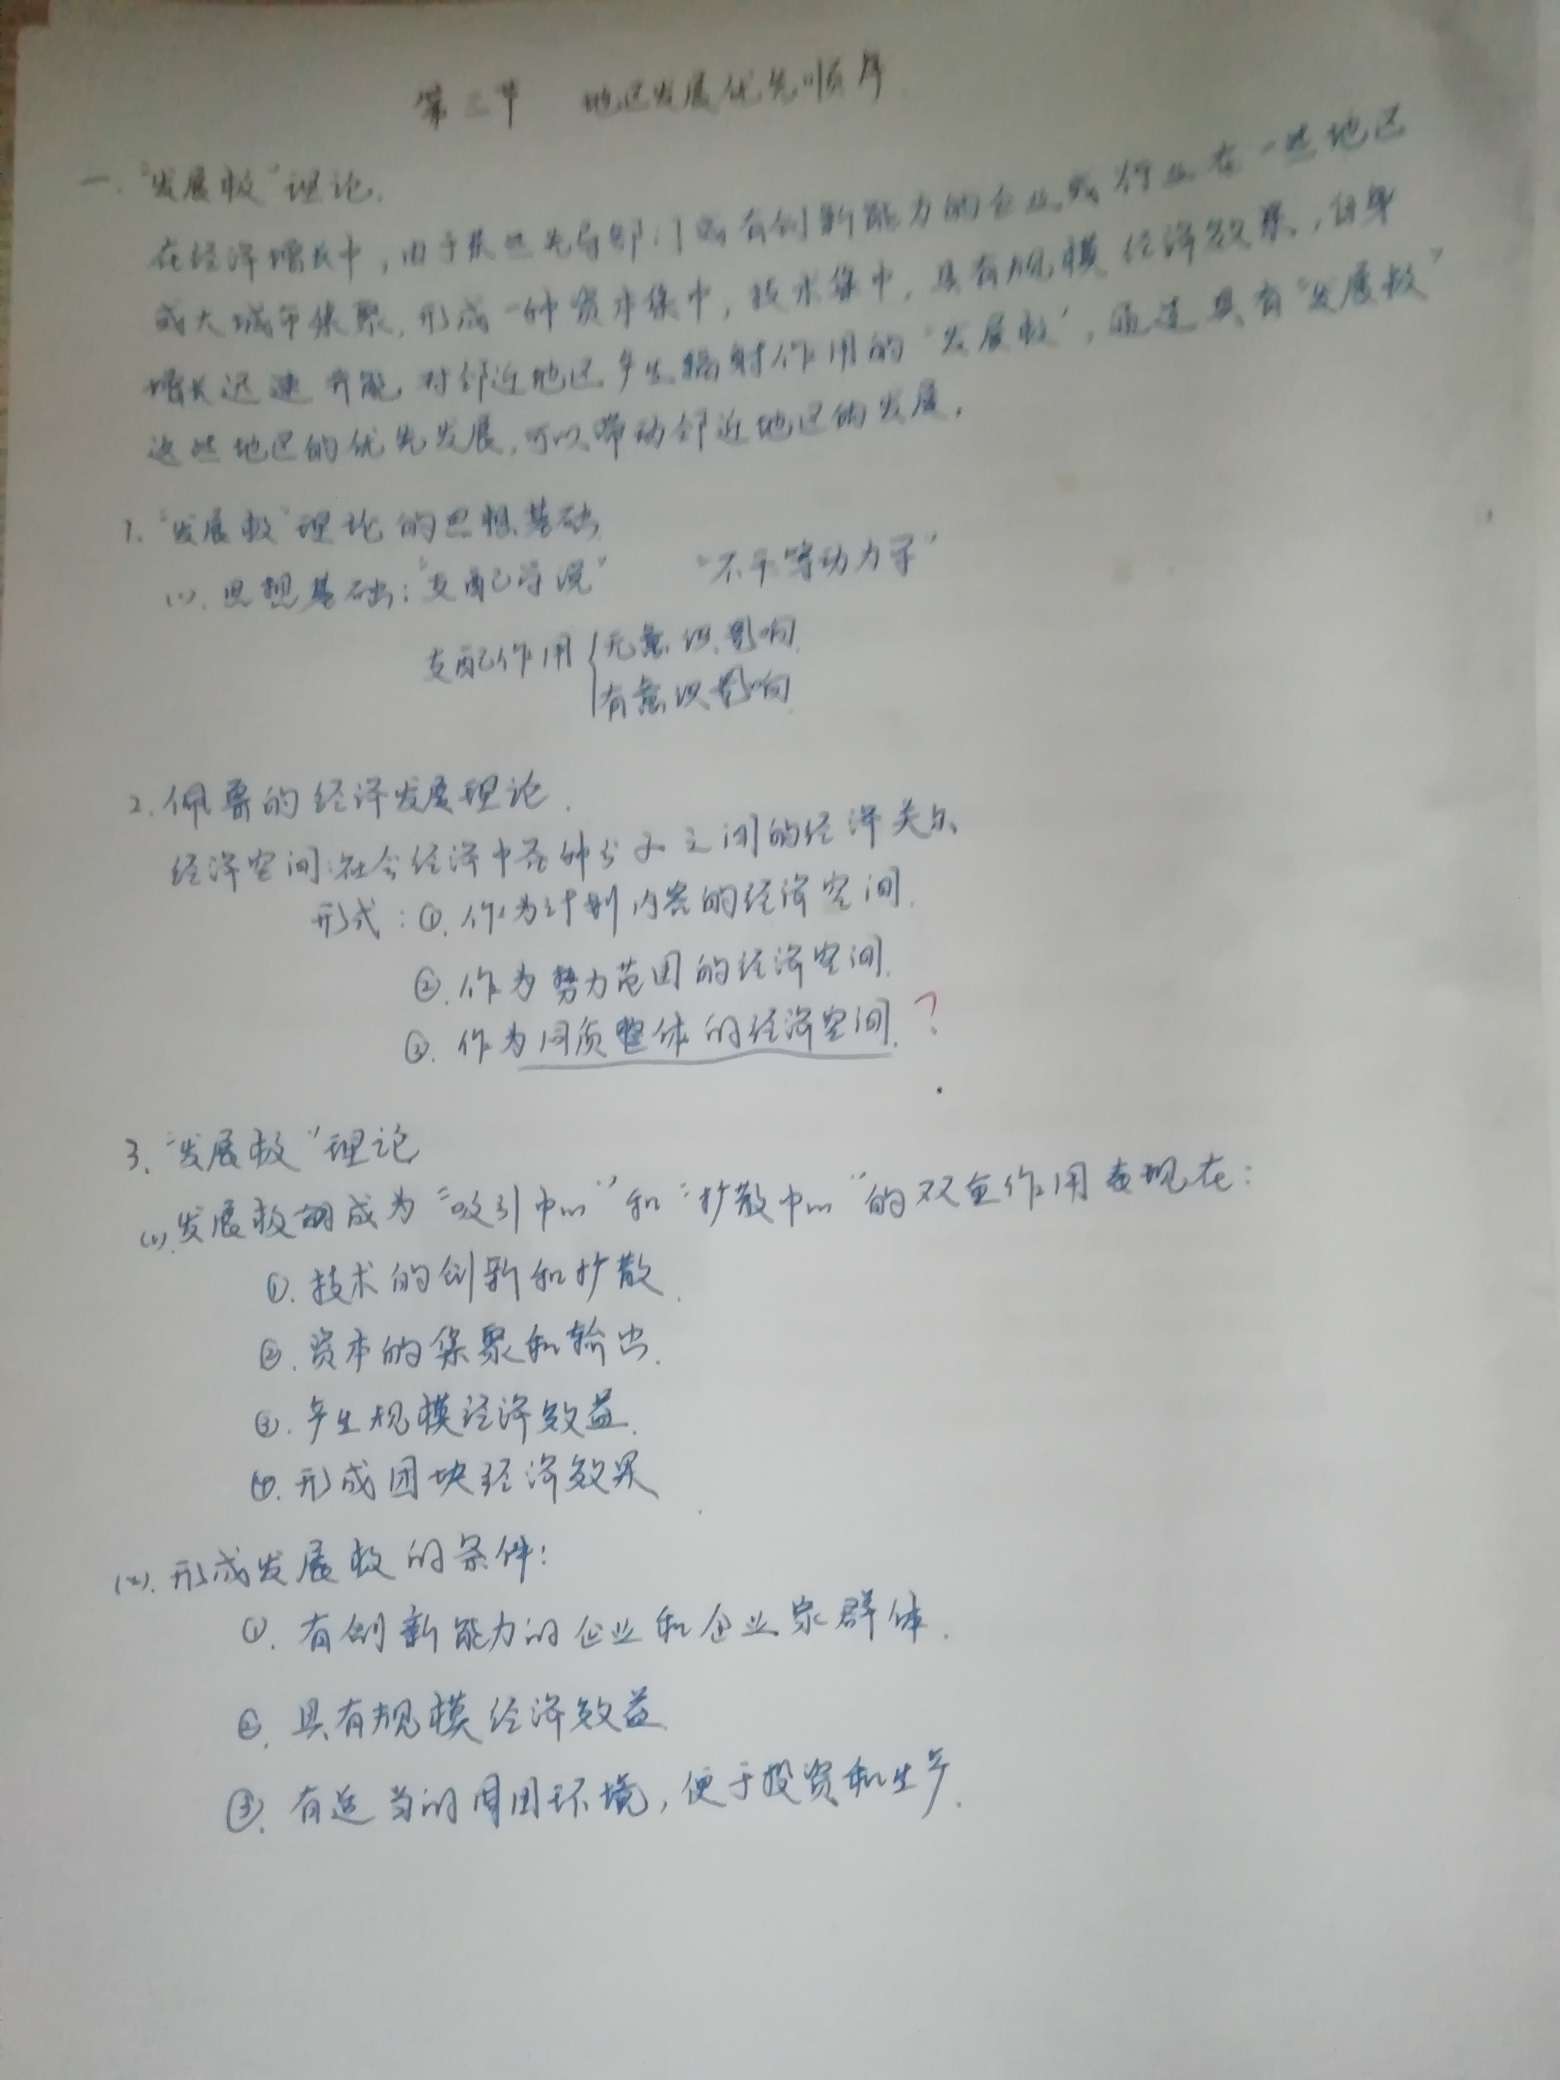 第三节 地区发展优先顺序
一. “发展极”理论.
在经济增长中，由于某些先导部门或有创新能力的企业或行业在一些地区
或大城市集聚，形成一种资本集中，技术集中，具有规模经济效果，自身
增长迅速并能对邻近地区产生辐射作用的“发展极”，通过具有“发展极”
这些地区的优先发展，可以带动邻近地区的发展.
1. “发展极”理论的思想基础
(1). 思想基础：“支配学说” “不平等动力学”
支配作用{无意识影响.
有意识影响.
2. 佩鲁的经济发展理论.
经济空间:社会经济中各种分子之间的经济关系
形式：①. 作为计划内容的经济空间.
②. 作为势力范围的经济空间.
③. 作为同质整体的经济空间. ?
3. “发展极”理论
(1). 发展极成为“吸引中心”和“扩散中心”的双重作用表现在：
①. 技术的创新和扩散.
②. 资本的集聚和输出.
③. 产生规模经济效益.
④. 形成团块经济效果
(2). 形成发展极的条件：
①. 有创新能力的企业和企业家群体.
②. 具有规模经济效益
③. 有适当的周围环境，便于投资和生产.